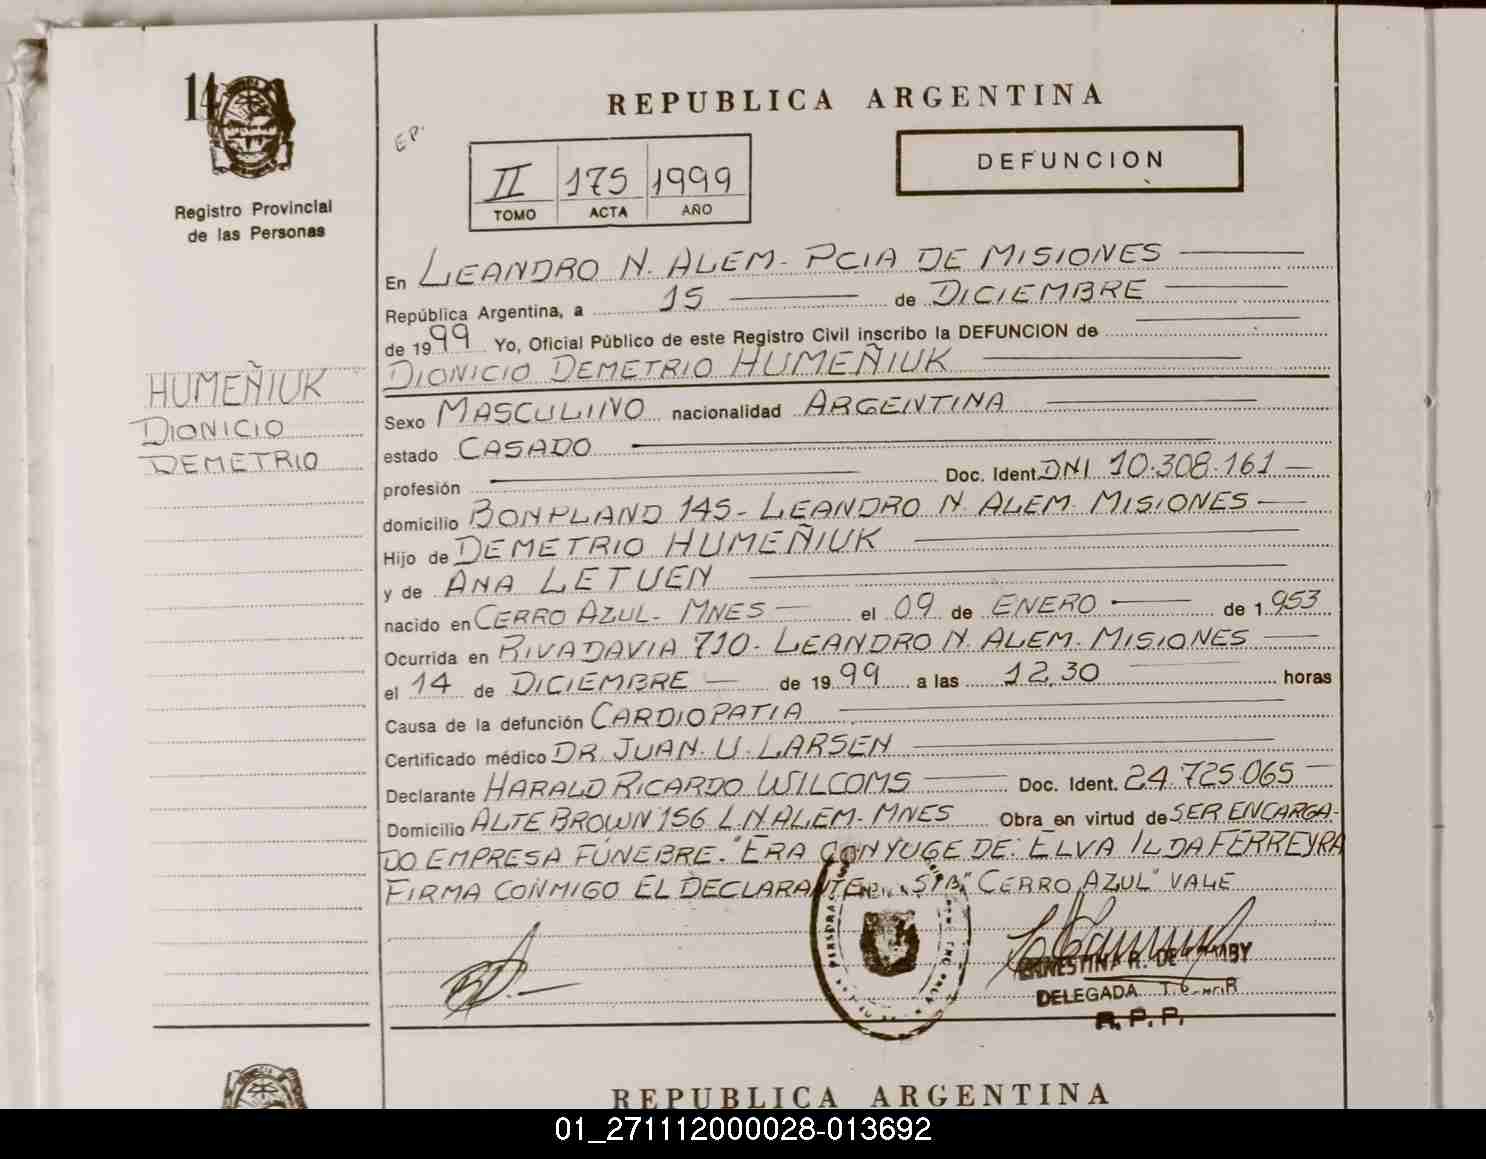 14
Registro Provincial
de las Personas
REPUBLICA ARGENTINA
EP.
DEFUNCION
II 175 1999
TOMO ACTA AÑO
En LEANDRO N. ALEM - PCIA DE MISIONES
República Argentina, a 15 de DICIEMBRE
de 1999 Yo, Oficial Público de este Registro Civil inscribo la DEFUNCION de
DIONICIO DEMETRIO HUMEÑIUK
HUMEÑIUK
DIONICIO
DEMETRIO
Sexo MASCULIINO nacionalidad ARGENTINA
estado CASADO
profesión Doc. Ident. DNI 10.308.161
domicilio BONPLAND 145 - LEANDRO N. ALEM. MISIONES
Hijo de DEMETRIO HUMEÑIUK
y de ANA LETUEN
nacido en CERRO AZUL - MNES el 09 de ENERO de 1.953
Ocurrida en RIVADAVIA 710 - LEANDRO N. ALEM. MISIONES
el 14 de DICIEMBRE de 1999 a las 12,30 horas
Causa de la defunción CARDIOPATIA
Certificado médico DR. JUAN. U. LARSEN
Declarante HARALD RICARDO WILCOMS Doc. Ident. 24.725.065
Domicilio ALTE BROWN 156 L.N ALEM - MNES Obra en virtud de SER ENCARGA-
DO EMPRESA FUNEBRE. "ERA CONYUGE DE: ELVA ILDA FERREYRA
FIRMA CONMIGO EL DECLARANTE "CERRO AZUL" VALE
ERNESTINA R. DE
DELEGADA
R. P. P.
REPUBLICA ARGENTINA
01_271112000028-013692